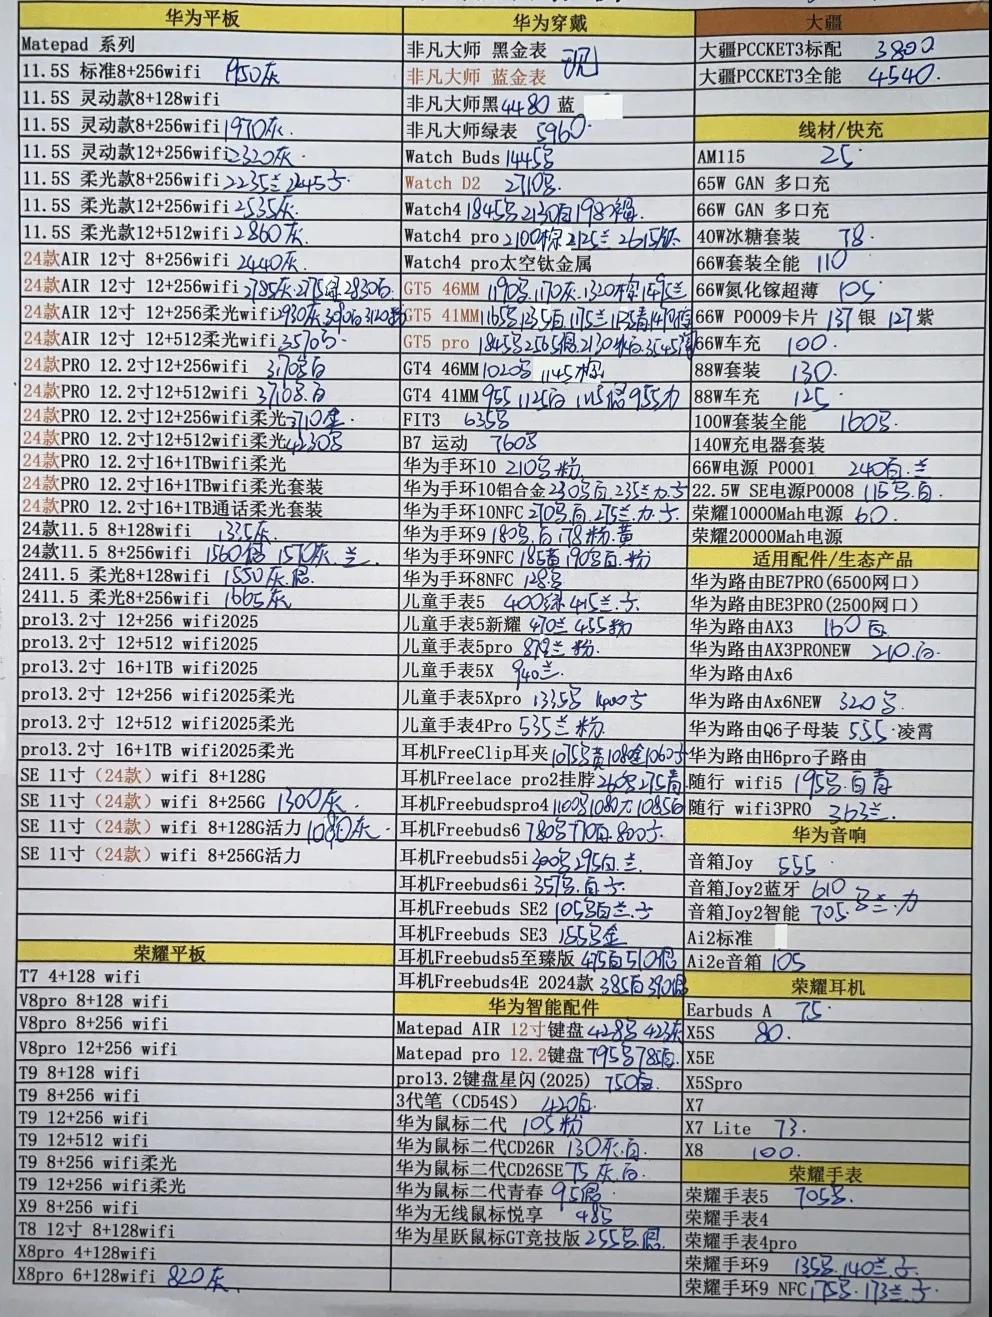 华为平板
Matepad 系列
11.5S 标准8+256wifi 1950灰
11.5S 灵动款8+128wifi
11.5S 灵动款8+256wifi 1970灰.
11.5S 灵动款12+256wifi 2320灰.
11.5S 柔光款8+256wifi 2235兰 2445子.
11.5S 柔光款12+256wifi 2535灰.
11.5S 柔光款12+512wifi 2860灰.
24款AIR 12寸 8+256wifi 2440灰.
24款AIR 12寸 12+256wifi 2785灰 2830白
24款AIR 12寸 12+256柔光款wifi 2930灰 3120粉
24款AIR 12寸 12+512柔光款wifi 3570
24款PRO 12.2寸12+256wifi 3170 白
24款PRO 12.2寸12+512wifi 3710 白
24款PRO 12.2寸12+256wifi柔光 3710金
24款PRO 12.2寸12+512wifi柔光 4230
24款PRO 12.2寸16+1TBwifi柔光
24款PRO 12.2寸16+1TBwifi柔光套装
24款PRO 12.2寸16+1TB通话柔光套装
24款11.5 8+128wifi 1335灰.
24款11.5 8+256wifi 1560 1570灰.兰.
2411.5 柔光8+128wifi 1550灰
2411.5 柔光8+256wifi 1665灰
pro13.2寸 12+256 wifi2025
pro13.2寸 12+512 wifi2025
pro13.2寸 16+1TB wifi2025
pro13.2寸 12+256 wifi2025柔光
pro13.2寸 12+512 wifi2025柔光
pro13.2寸 16+1TB wifi2025柔光
SE 11寸（24款）wifi 8+128G
SE 11寸（24款）wifi 8+256G 1300灰.
SE 11寸（24款）wifi 8+128G活力 1080灰.
SE 11寸（24款）wifi 8+256G活力
荣耀平板
T7 4+128 wifi
V8pro 8+128 wifi
V8pro 8+256 wifi
V8pro 12+256 wifi
T9 8+128 wifi
T9 8+256 wifi
T9 12+256 wifi
T9 12+512 wifi
T9 8+256 wifi柔光
T9 12+256 wifi柔光
X9 8+256 wifi
T8 12寸 8+128wifi
X8pro 4+128wifi
X8pro 6+128wifi 820灰.
华为穿戴
非凡大师 黑金表 现
非凡大师 蓝金表
非凡大师黑4480 蓝
非凡大师绿表 5960.
Watch Buds 1445
Watch D2 2710
Watch4 1845 2130白 1980
Watch4 pro 2100棕 2125兰 2615
Watch4 pro太空钛金属
GT5 46MM 1190 1170灰 1320棕 1495兰
GT5 41MM 1165 1235白 1175兰
GT5 pro 1845 2565 2130
GT4 46MM 1020 1145棕
GT4 41MM 955 1125白 955
FIT3 635
B7 运动 760
华为手环10 210 粉
华为手环10铝合金 230 白.235兰.力.子
华为手环10NFC 270 白.275兰.力.子.
华为手环9 180 白 178粉.黄
华为手环9NFC 185黄 190 白.粉
华为手环8NFC 128
儿童手表5 400绿 415兰.子
儿童手表5新耀 470兰 455粉
儿童手表5pro 878兰 粉.
儿童手表5X 940兰.
儿童手表5Xpro 1335 1400子
儿童手表4Pro 535兰 粉.
耳机FreeClip耳夹 1075 黄1080金1060子
耳机Freelace pro2挂脖 260 275青
耳机Freebudspro4 1100 1080力 1085白
耳机Freebuds6 780 770白.800子.
耳机Freebuds5i 300 295白.兰.
耳机Freebuds6i 357 .白.子.
耳机Freebuds SE2 105 白兰.子
耳机Freebuds SE3 155 金
耳机Freebuds5至臻版 475白 510
耳机Freebuds4E 2024款 385白 390
华为智能配件
Matepad AIR 12寸键盘 428 423灰
Matepad pro 12.2键盘 795 785白.
pro13.2键盘星闪(2025) 750白.
3代笔（CD54S） 420白.
华为鼠标二代 105粉
华为鼠标二代CD26R 130灰.白.
华为鼠标二代CD26SE 75灰.白.
华为鼠标二代青春 95
华为无线鼠标悦享 48
华为星跃鼠标GT竞技版 255
大疆
大疆PCCKET3标配 3800
大疆PCCKET3全能 4540.
线材/快充
AM115 25.
65W GAN 多口充
66W GAN 多口充
40W冰糖套装 78.
66W套装全能 110
66W氮化镓超薄 105
66W P0009卡片 137 银 127 紫
66W车充 100.
88W套装 130.
88W车充 125.
100W套装全能 160
140W充电器套装
66W电源 P0001 240白.兰
22.5W SE电源P0008 115 .白.
荣耀10000Mah电源 60.
荣耀20000Mah电源
适用配件/生态产品
华为路由BE7PRO(6500网口)
华为路由BE3PRO(2500网口)
华为路由AX3 160白
华为路由AX3PRONEW 210.白.
华为路由Ax6
华为路由Ax6NEW 320
华为路由Q6子母装 555.凌霄
华为路由H6pro子路由
随行 wifi5 195 .白青
随行 wifi3PRO 363兰.
华为音响
音箱Joy 555.
音箱Joy2蓝牙 610
音箱Joy2智能 705. 兰.力
Ai2标准
Ai2e音箱 105
荣耀耳机
Earbuds A 75.
X5S 80.
X5E
X5Spro
X7
X7 Lite 73.
X8 100.
荣耀手表
荣耀手表5 705
荣耀手表4
荣耀手表4pro
荣耀手环9 135 .140兰.子.
荣耀手环9 NFC 175 .173兰.子